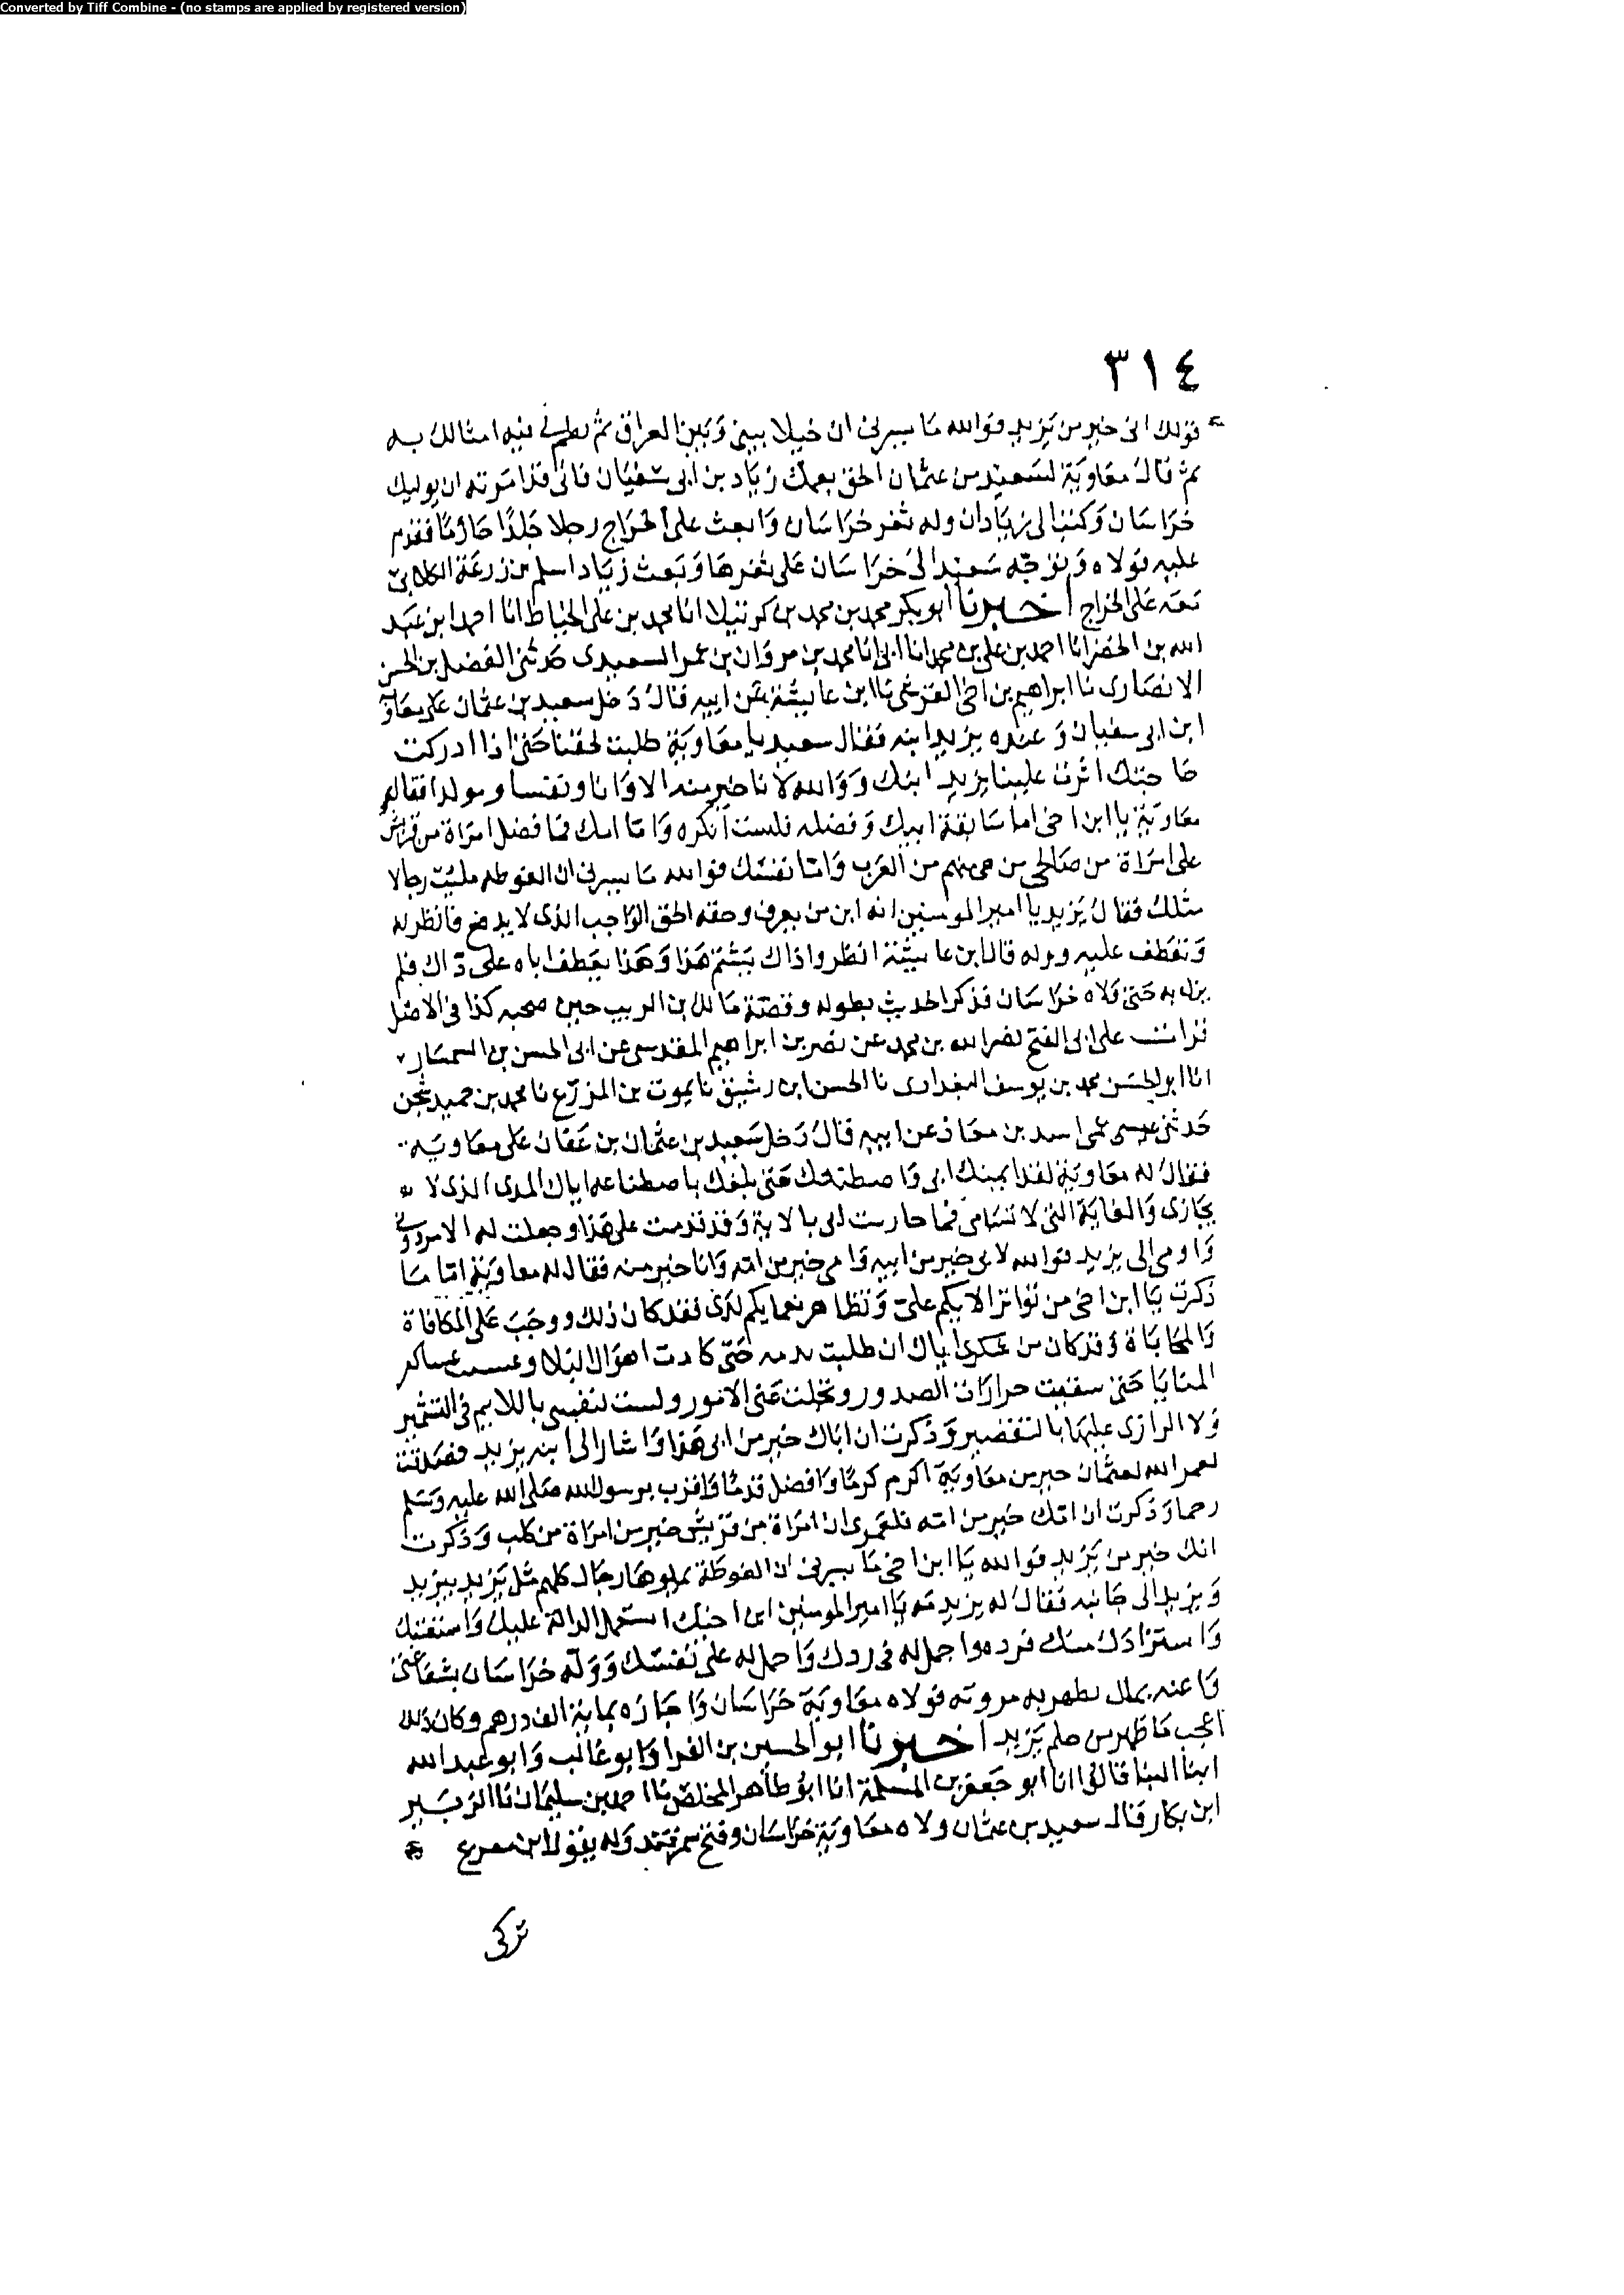 Converted by Tiff Combine - (no stamps are applied by registered version)
٣١٤
قولك انى خير من يزيد فوالله ما يسرنى ان خيلا بينى وبين العراق ثم نظم لى فيه امثالك به
ثم قال معاوية لسعيد بن عثمان الحق بعمك زياد بن ابى سفيان فانى قد امرته ان يوليك
خراسان وكتب الى زياد ان وله ثغر خراسان وابعث على الخراج رجلا جلدا حازما فقدم
عليه فولاه وتوجه سعيد الى خراسان على ثغرها وبعث زياد اسلم بن زرعة الكلابى
معه على الخراج اخبرنا ابو بكر محمد بن محمد بن كرتيلا انا محمد بن على الخياط انا احمد ابن عبد
الله بن الخضر انا احمد بن على بن محمد انا ابى انا محمد بن مروان بن عمر السعيدى حدثنى الفضل بن الحسن
الانصارى نا ابراهيم بن اخى القرشى نا ابن عايشة عن ابيه قال دخل سعيد بن عثمان على معاوية
ابن ابى سفيان وعنده يزيد ابنه فقال سعيد يا معاوية طلبت بحقنا حتى اذا ادركت
حاجتك اثرت علينا يزيد ابنك ووالله لانا خير منه الا وانا ونفسا ومولدا فقال له
معاوية يا ابن اخى اما سابقة ابيك وفضله فلست انكره واما امك فما فضل امراة من قريش
على امراة من صالحى من هى منهم من العرب واما نفسك فوالله ما يسرنى ان الغوطه مليت رجالا
مثلك فقال يزيد يا امير المومنين انه ابن من يعرف وحقه الحق الواجب الذى لا يدفع فانظر له
وتعطف عليه ووله قال ابن عايشة انظروا ذاك يشتم هذا وهذا يعطف اباه على ذاك فلم
يزل به حتى ولاه خراسان فذكر الحديث بطوله وقصة مالك بن الريب حين صحبه كذا فى الاصل
قرات على ابى الفتح نصر الله بن محمد عن نصر بن ابراهيم المقدسى عن ابى الحسن بن السمسار
انا ابو الحسن محمد بن يوسف البغدادى نا الحسن ابن رشيق نا يموت بن المزرع نا محمد بن حميد
حدثنى عمى اسد بن معاذ عن ابيه قال دخل سعيد بن عثمان بن عفان على معاوية
فقال له معاوية لقد ابى واصطنعك حتى بلغك باصطناعه اياك المدى الذى لا
يجازى والغاية التى لا تسامى فما جازيت ابى بالايه وقد قدمت على هذا وجعلت له الامر دونى
واومى الى يزيد فوالله لابى خير من ابيه وامى خير من امه وانا خير منه فقال له معاوية اما ما
ذكرت يا ابن اخى من تواتر الايكم على وتظاهر نعمايكم لدى فقد كان ذلك ووجب على المكافاة
والمجازاة وقد كان من شكرى اياك ان طلبت بدمه حتى كادت اهوال البلا عساكر
المنايا حتى شفيت حرارات الصدور وتجلت عنى الامور ولست لنفسى باللايم فى التشمير
ولا الزارى عليها بالتقصير وذكرت ان اباك خير من ابى هذا واشار الى ابنه يزيد فصدقت
لعمر الله لعثمان خير من معاوية اكرم كرما وافضل قدما واقرب برسول الله صلى الله عليه وسلم
رحما وذكرت ان امك خير من امه فلعمرى ان امراة من قريش خير من امراة من كلب وذكرت
انك خير من يزيد فوالله يا ابن اخى ما يسرنى ان الغوطة يملوها رجال كلهم مثل يزيد بيزيد
ويزيد الى جانبه فقال له يزيد مه يا امير المومنين ابن اخيك استعمل الدالة عليك واستعتبك
واستزادك منك فزده واجمل له فى ردك واحمل له على نفسك ووله خراسان بشفاعتى
واعنه بمال يظهر به مروته فولاه معاوية خراسان واجازه بماية الف درهم وكان ذلك
اعجب ما ظهر من حلم يزيد اخبرنا ابو الحسين بن الفرا وابو غالب وابو عبد الله
ابنا البنا قالوا انا ابو جعفر بن المسلمة انا ابو طاهر المخلص نا احمد بن سليمان نا الزبير
ابن بكار قال سعيد بن عثمان ولاه معاوية خراسان وفتح سمرقند وله يقول ابن مفرغ
تركى